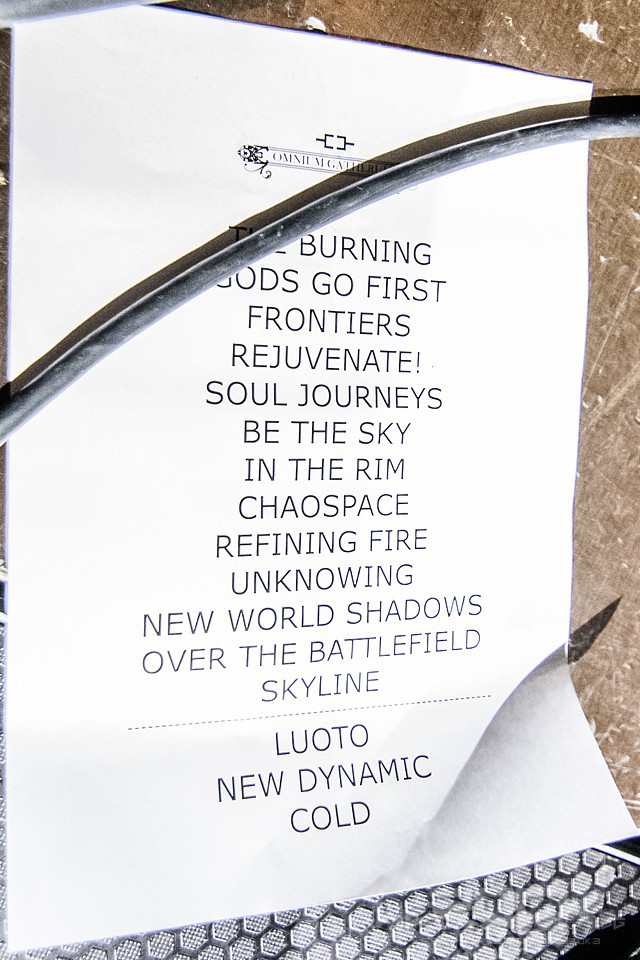 OMNIUM GATHERUM
BURNING
GODS GO FIRST
FRONTIERS
REJUVENATE!
SOUL JOURNEYS
BE THE SKY
IN THE RIM
CHAOSPACE
REFINING FIRE
UNKNOWING
NEW WORLD SHADOWS
OVER THE BATTLEFIELD
SKYLINE
LUOTO
NEW DYNAMIC
COLD